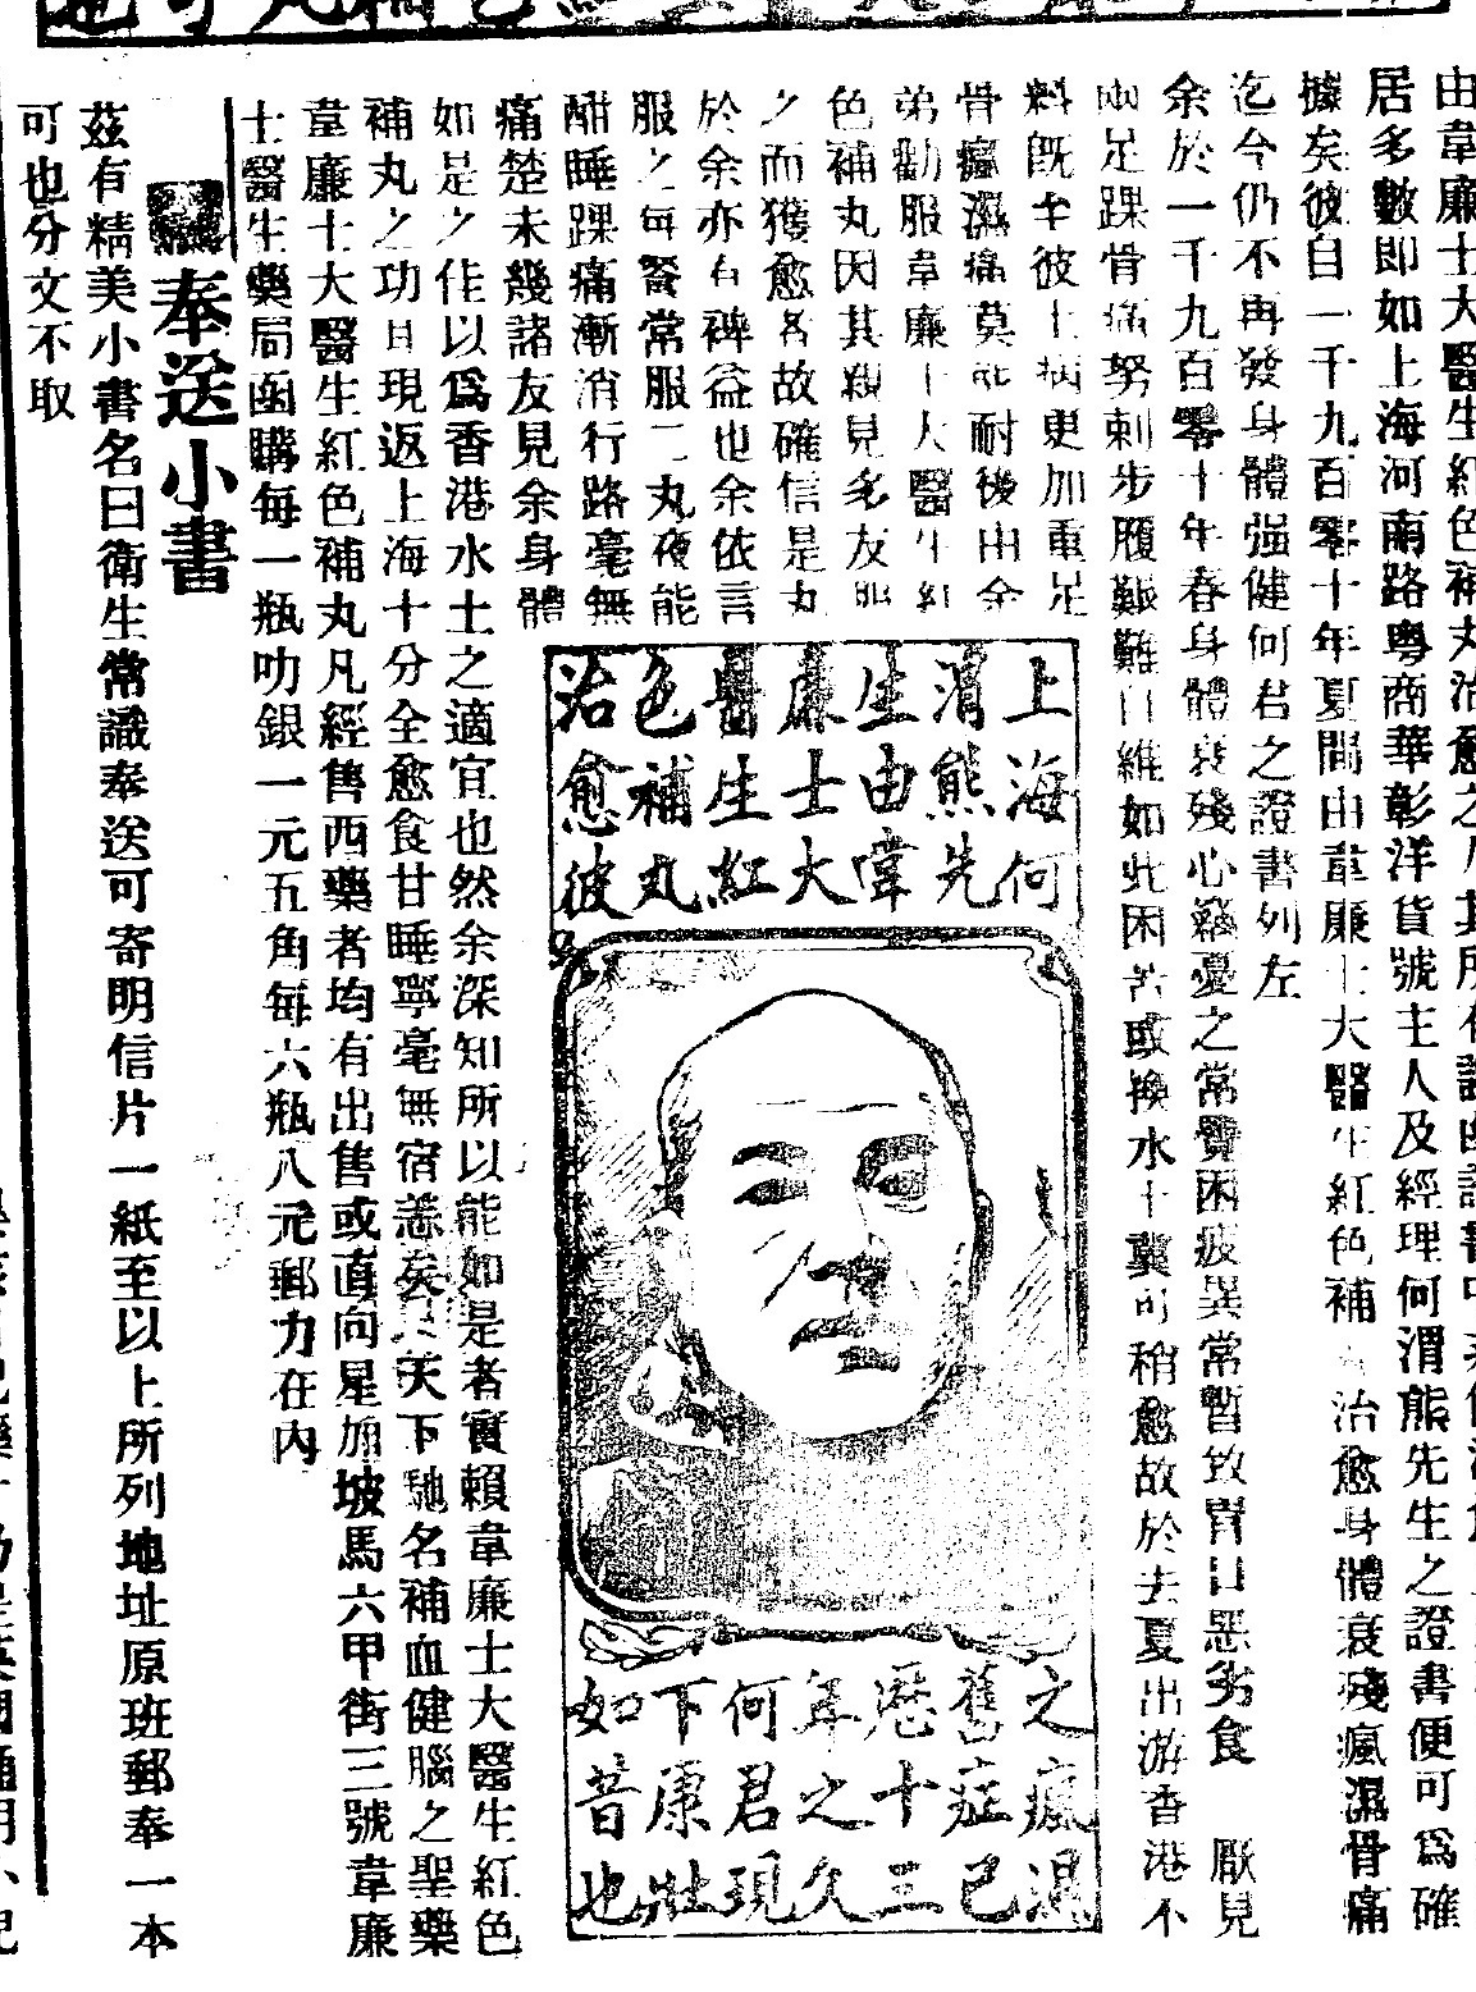 由韋廉士大醫生紅色補丸治愈之
居多數即如上海河南路粵商華彰洋貨號主人及經理何渭熊先生之證書便可爲確
據矣彼自一千九百零十年夏間由韋廉士大醫生紅色補丸治愈身體衰殘瘋濕骨痛
迄今仍不再發身體强健何君之證書列左
余於一千九百零十年春身體衰殘心艱憂之常覺困疲異常暫致胃口惡劣食 厭見
兩足踝骨痛努刺步履艱難口維如此困苦或換水土冀可稍愈故於去夏出游香港不
料旣至彼土病更加重足
骨瘋濕痛莫能耐後由余
弟勸服韋廉士大醫生紅
色補丸因其親見多友服
之而獲愈者故確信是丸
於余亦有裨益也余依言
服之每餐常服二丸夜能
酣睡踝痛漸消行路毫無
痛楚未幾諸友見余身體
如是之佳以爲香港水土之適宜也然余深知所以能如是者實賴韋廉士大醫生紅色
補丸之功且現返上海十分全愈食甘睡寧毫無宿恙矣 天下馳名補血健腦之聖藥
韋廉士大醫生紅色補丸凡經售西藥者均有出售或直向星加坡馬六甲街三號韋廉
士醫生藥局函購每一瓶叻銀一元五角每六瓶八元郵力在內
上海何
渭熊先
生由韋
廉士大
醫生紅
色補丸
治愈彼
之瘋濕
舊症已
歷十三
年之久
何君現
下康壯
如昔也
奉送小書
茲有精美小書名曰衛生常識奉送可寄明信片一紙至以上所列地址原班郵奉一本
可也分文不取